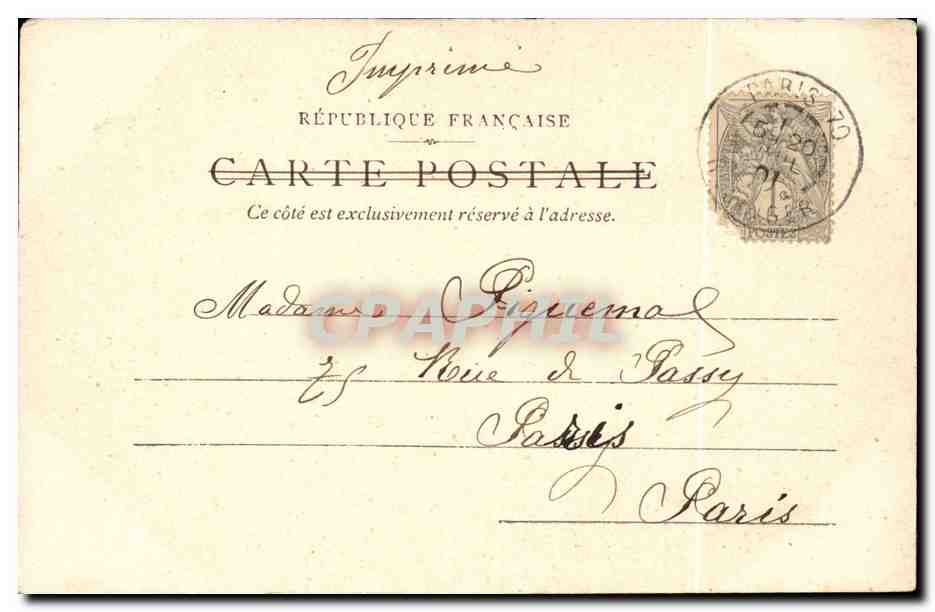 Imprimé
RÉPUBLIQUE FRANÇAISE
CARTE POSTALE
Ce côté est exclusivement réservé à l'adresse.
PARIS 70
POSTES
CPAPHIL
Madame Piquemal
75 Rue de Passy
Paris
Paris